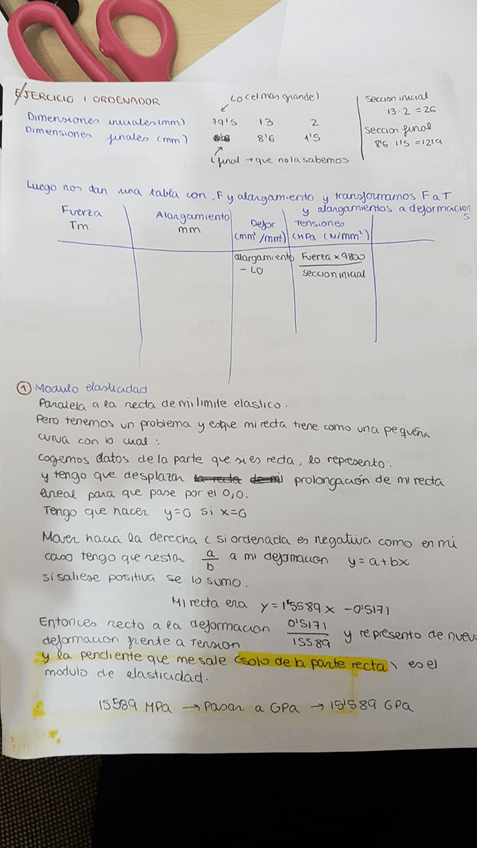 EJERCICIO 1 ORDENADOR
Lo (el mas grande)
Dimensiones iniciales (mm) 79'5 13 2
Dimensiones finales (mm) 8'6 1'5
L final → que no la sabemos
Seccion inicial
13·2 = 26
seccion final
8'6 · 1'5 = 12'9
Luego nos dan una tabla con, F y alargamiento y transformamos F a T
y alargamientos a deformaciones
Fuerza Tm
Alargamiento mm
Defor (mm/mm)
Tensiones (MPa (N/mm²)
alargamiento
- LO
Fuerza x 9800
seccion inicial
① Modulo elasticidad
Paralela a la recta de mi limite elastico.
Pero tenemos un problema y es que mi recta tiene como una pequeña
curva con lo cual:
Cogemos datos de la parte que si es recta, lo represento.
y tengo que desplazar la recta de mi prolongación de mi recta
lineal para que pase por el 0,0.
Tengo que hacer y=0 si x=0
Mover hacia la derecha (si ordenada es negativa como en mi
caso tengo que restar a/b a mi deformacion y=a+bx
si saliese positiva se lo sumo.
Mi recta era y = 15589x - 0'5171
Entonces resto a la deformacion 0'5171/15589 y represento de nuevo
deformacion frente a Tension
y la pendiente que me sale (solo de la parte recta) es el
modulo de elasticidad.
15589 MPa → Pasar a GPa → 15'589 GPa